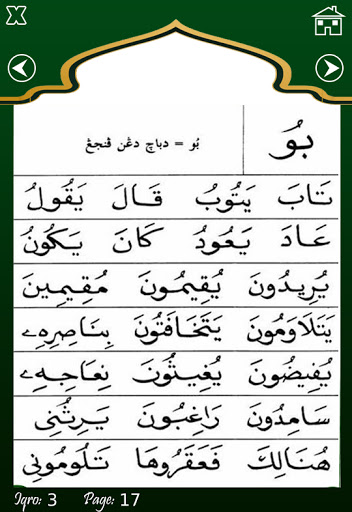 X
بُو
بُو = دباچ دڠن ڤنجڠ
تَابَ يَتُوبُ قَالَ يَقُولُ
عَادَ يَعُودُ كَانَ يَكُونُ
يُرِيدُونَ يُقِيمُونَ مُقِيمِينَ
يَتَلَاوَمُونَ يَتَخَافَتُونَ بِنَاصِرِهِے
يُفِيضُونَ يُغِيثُونَ نِعَاجِهِے
سَامِدُونَ رَاغِبُونَ يَرِثُنِی
هُنَالِكَ فَعَقَرُوهَا تَلُومُونِی
Iqro: 3 Page: 17